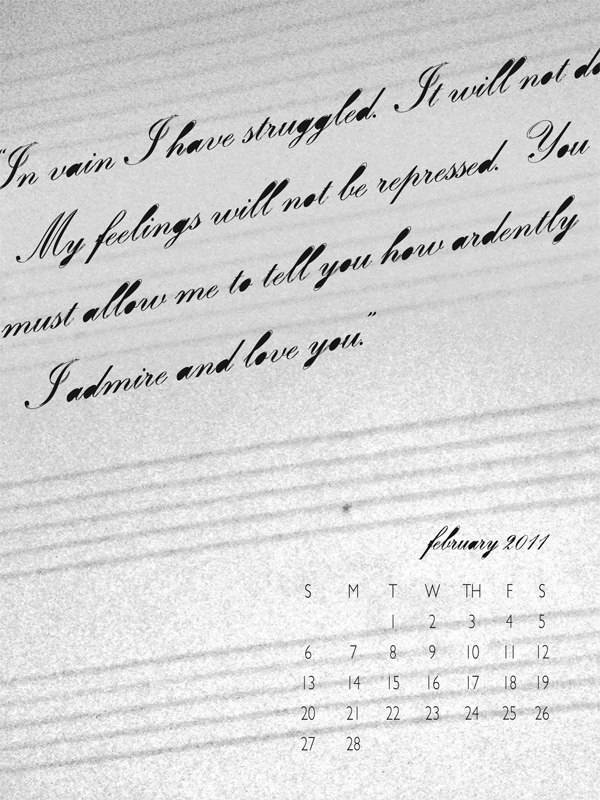 "In vain I have struggled. It will not do
My feelings will not be repressed. You
must allow me to tell you how ardently
I admire and love you."
february 2011
S M T W TH F S
1 2 3 4 5
6 7 8 9 10 11 12
13 14 15 16 17 18 19
20 21 22 23 24 25 26
27 28